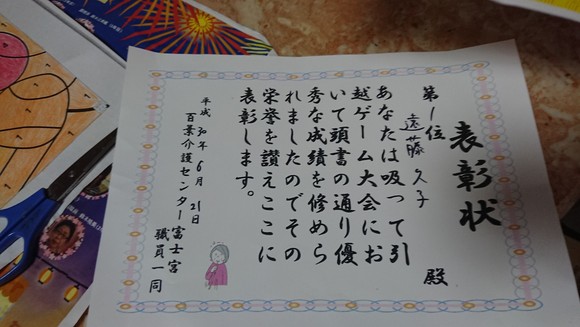 表彰状
第1位
遠藤久子 殿
あなたは吸って引
越ゲーム大会にお
いて頭書の通り優
秀な成績を修めら
れましたのでその
栄誉を讃えここに
表彰します。
平成30年6月21日
百葉介護センター富士宮
職員一同